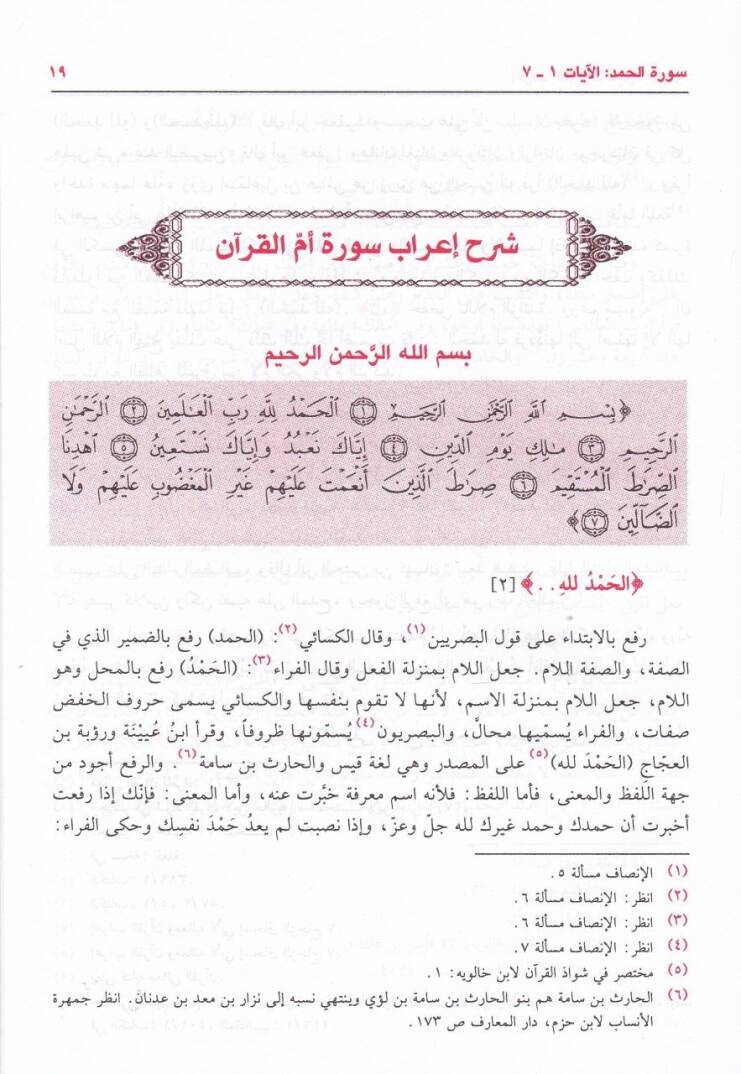 سورة الحمد: الآيات ١ - ٧
١٩
شرح إعراب سورة أمّ القرآن
بسم الله الرَّحمن الرحيم
﴿بِسْمِ ٱللَّهِ ٱلرَّحْمَٰنِ ٱلرَّحِيمِ ١ ٱلْحَمْدُ لِلَّهِ رَبِّ ٱلْعَٰلَمِينَ ٢ ٱلرَّحْمَٰنِ
ٱلرَّحِيمِ ٣ مَٰلِكِ يَوْمِ ٱلدِّينِ ٤ إِيَّاكَ نَعْبُدُ وَإِيَّاكَ نَسْتَعِينُ ٥ ٱهْدِنَا
ٱلصِّرَٰطَ ٱلْمُسْتَقِيمَ ٦ صِرَٰطَ ٱلَّذِينَ أَنْعَمْتَ عَلَيْهِمْ غَيْرِ ٱلْمَغْضُوبِ عَلَيْهِمْ وَلَا
ٱلضَّآلِّينَ ٧﴾
﴿الحَمْدُ للهِ..﴾ [٢]
رفع بالابتداء على قول البصريين(١) وقال الكسائي(٢): (الحمد) رفع بالضمير الذي في
الصفة، والصفة اللام: جعل اللام بمنزلة الفعل وقال الفراء(٣): (الحَمْدُ) رفع بالمحل وهو
اللام، جعل اللام بمنزلة الاسم، لأنها لا تقوم بنفسها والكسائي يسمى حروف الخفض
صفات، والفراء يُسمّيها محالَّ، والبصريون(٤) يُسمّونها ظروفاً، وقرأ ابنُ عُيينَة ورؤبة بن
العجّاجِ (الحَمْدَ لله)(٥) على المصدر وهي لغة قيس والحارث بن سامة(٦). والرفع أجود من
جهة اللّفظ والمعنى، فأما اللفظ: فلأنه اسم معرفة خبَّرت عنه، وأما المعنى: فإنّك إذا رفعت
أخبرت أن حمدك وحمد غيرك لله جلّ وعزّ، وإذا نصبت لم يعدُ حَمْدَ نفسِك وحكى الفراء:
(١) الإنصاف مسألة ٥.
(٢) انظر: الإنصاف مسألة ٦.
(٣) انظر: الإنصاف مسألة ٦.
(٤) انظر: الإنصاف مسألة ٧.
(٥) مختصر في شواذ القرآن لابن خالويه: ١.
(٦) الحارث بن سامة هم بنو الحارث بن سامة بن لؤي وينتهي نسبه إلى نزار بن معد بن عدنان. انظر جمهرة
الأنساب لابن حزم، دار المعارف ص ١٧٣.